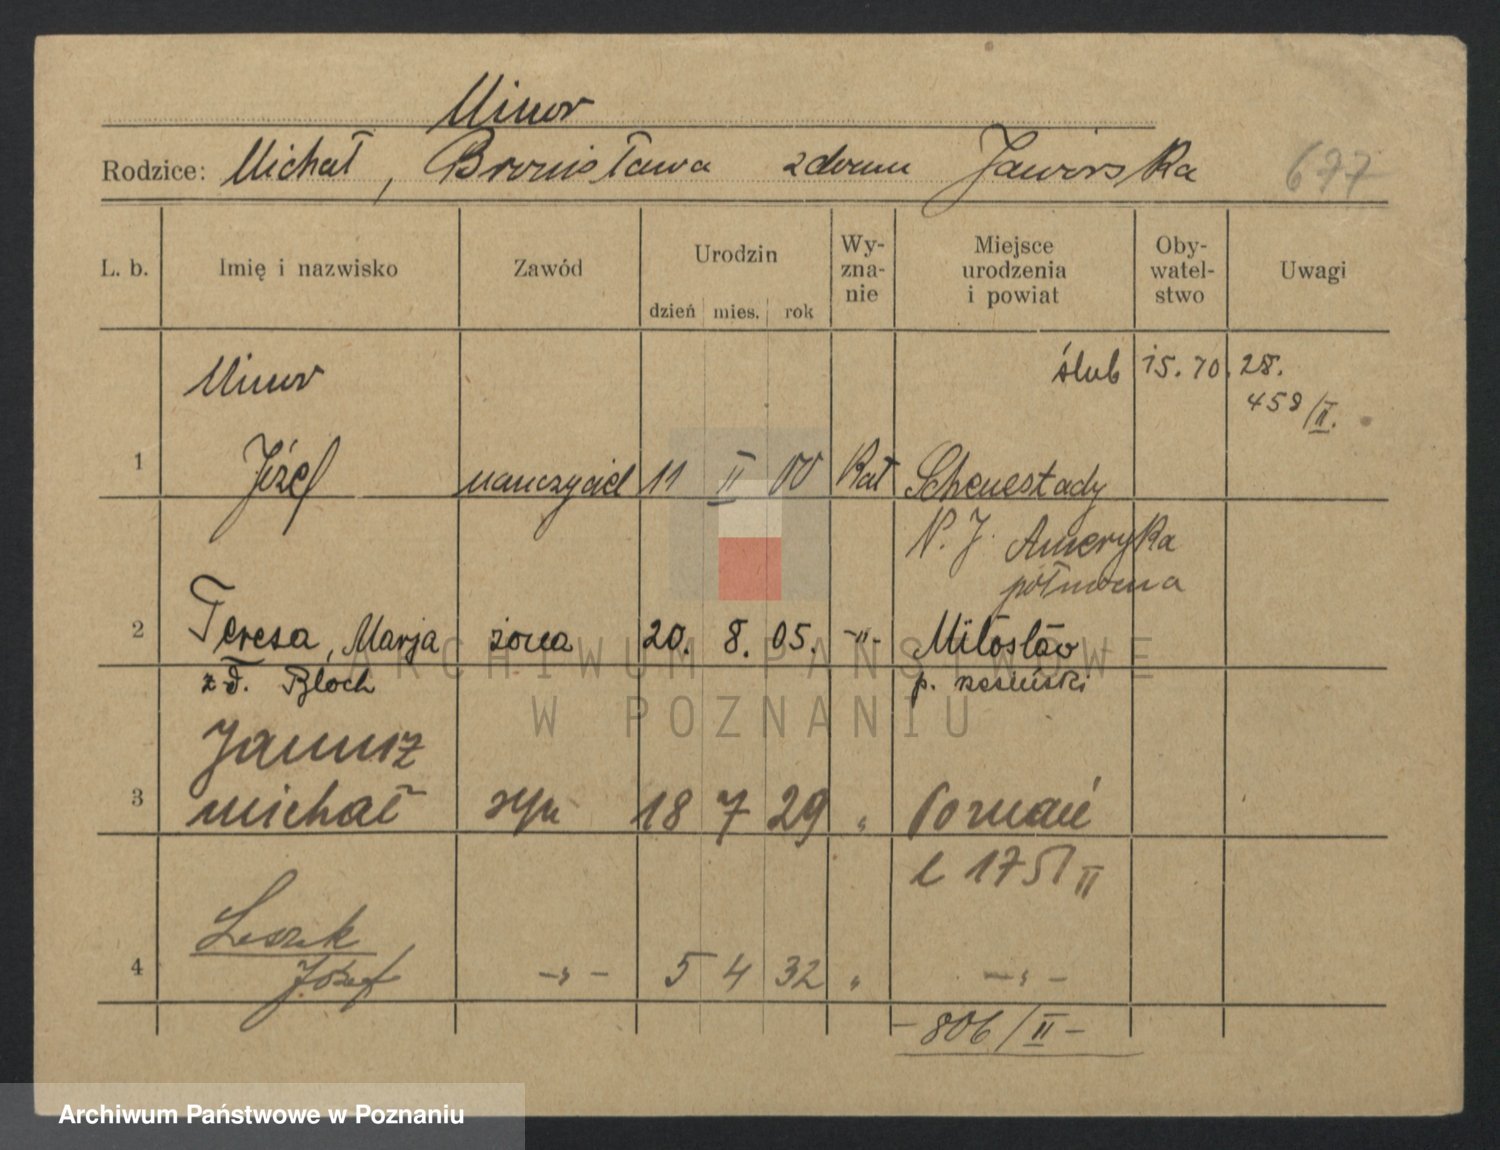 Minor
Rodzice: Michał, Bronisława z domu Jaworska 677
L. b. Imię i nazwisko Zawód Urodzin Wy-zna-nie Miejsce urodzenia i powiat Oby-watel-stwo Uwagi
dzień mies. rok
Minor ślub 15. 10. 28.
458/II.
1 Józef nauczyciel 11 II 00 Kat Schenestady
N. J. Ameryka
północna
2 Teresa, Marja żona 20. 8. 05. -"- Miłosław
z d. Bloch p.
Janusz
3 michał syn 18 7 29 " Poznań
1751 II
Leszek
4 Józef -"- 5 4 32 " -"-
-806/II-
ARCHIWUM PAŃSTWOWE
W POZNANIU
Archiwum Państwowe w Poznaniu